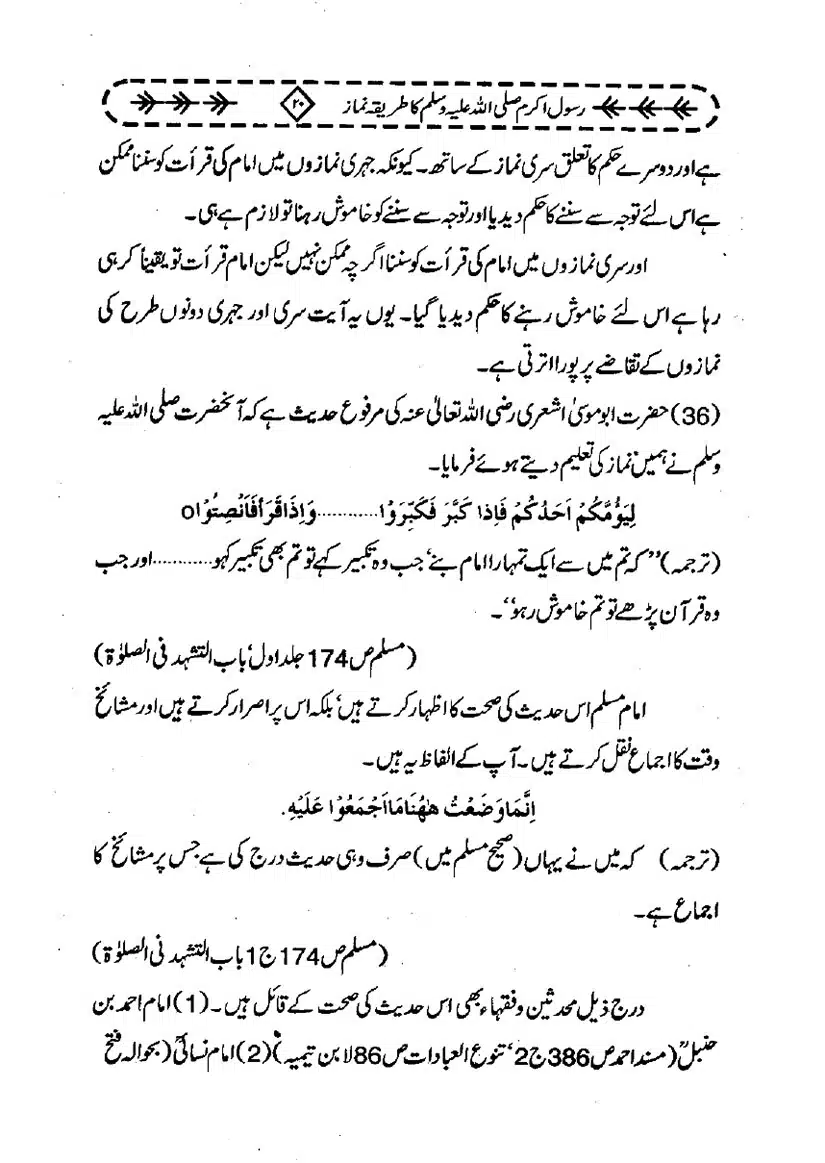 رسول اکرم صلی اللہ علیہ وسلم کا طریقہ نماز ۲۰
ہے اور دوسرے حکم کا تعلق سری نماز کے ساتھ۔ کیونکہ جہری نمازوں میں امام کی قرأت کو سننا ممکن
ہے اس لئے توجہ سے سننے کا حکم دیدیا اور توجہ سے سننے کو خاموش رہنا تو لازم ہے ہی۔
اور سری نمازوں میں امام کی قرأت کو سننا اگرچہ ممکن نہیں لیکن امام قرأت تو یقیناً کر ہی
رہا ہے اس لئے خاموش رہنے کا حکم دیدیا گیا۔ یوں یہ آیت سری اور جہری دونوں طرح کی
نمازوں کے تقاضے پر پورا اترتی ہے۔
(36) حضرت ابو موسیٰ اشعری رضی اللہ تعالیٰ عنہ کی مرفوع حدیث ہے کہ آنحضرت صلی اللہ علیہ
وسلم نے ہمیں نماز کی تعلیم دیتے ہوئے فرمایا۔
لِيَؤُمَّكُمْ اَحَدُكُمْ فَاِذَا كَبَّرَ فَكَبِّرَوْا...........وَاِذَا قَرَأَ فَاَنْصِتُوْا٥
(ترجمہ) ”کہ تم میں سے ایک تمہارا امام بنے‘ جب وہ تکبیر کہے تو تم بھی تکبیر کہو...........اور جب
وہ قرآن پڑھے تو تم خاموش رہو“۔
(مسلم ص 174 جلد اول‘ باب التشہد فی الصلوٰۃ)
امام مسلم اس حدیث کی صحت کا اظہار کرتے ہیں‘ بلکہ اس پر اصرار کرتے ہیں اور مشائخ
وقت کا اجماع نقل کرتے ہیں۔ آپ کے الفاظ یہ ہیں۔
اِنَّمَا وَضَعْتُ هٰهُنَا مَا اَجْمَعُوْا عَلَيْهِ.
(ترجمہ) کہ میں نے یہاں (صحیح مسلم میں) صرف وہی حدیث درج کی ہے جس پر مشائخ کا
اجماع ہے۔
(مسلم ص 174 ج 1 باب التشہد فی الصلوٰۃ)
درج ذیل محدثین و فقہاء بھی اس حدیث کی صحت کے قائل ہیں۔ (1) امام احمد بن
حنبلؒ (مسند احمد ص 386 ج 2‘ تنوع العبادات ص 86 لابن تیمیہ) (2) امام نسائیؒ (بحوالہ فتح